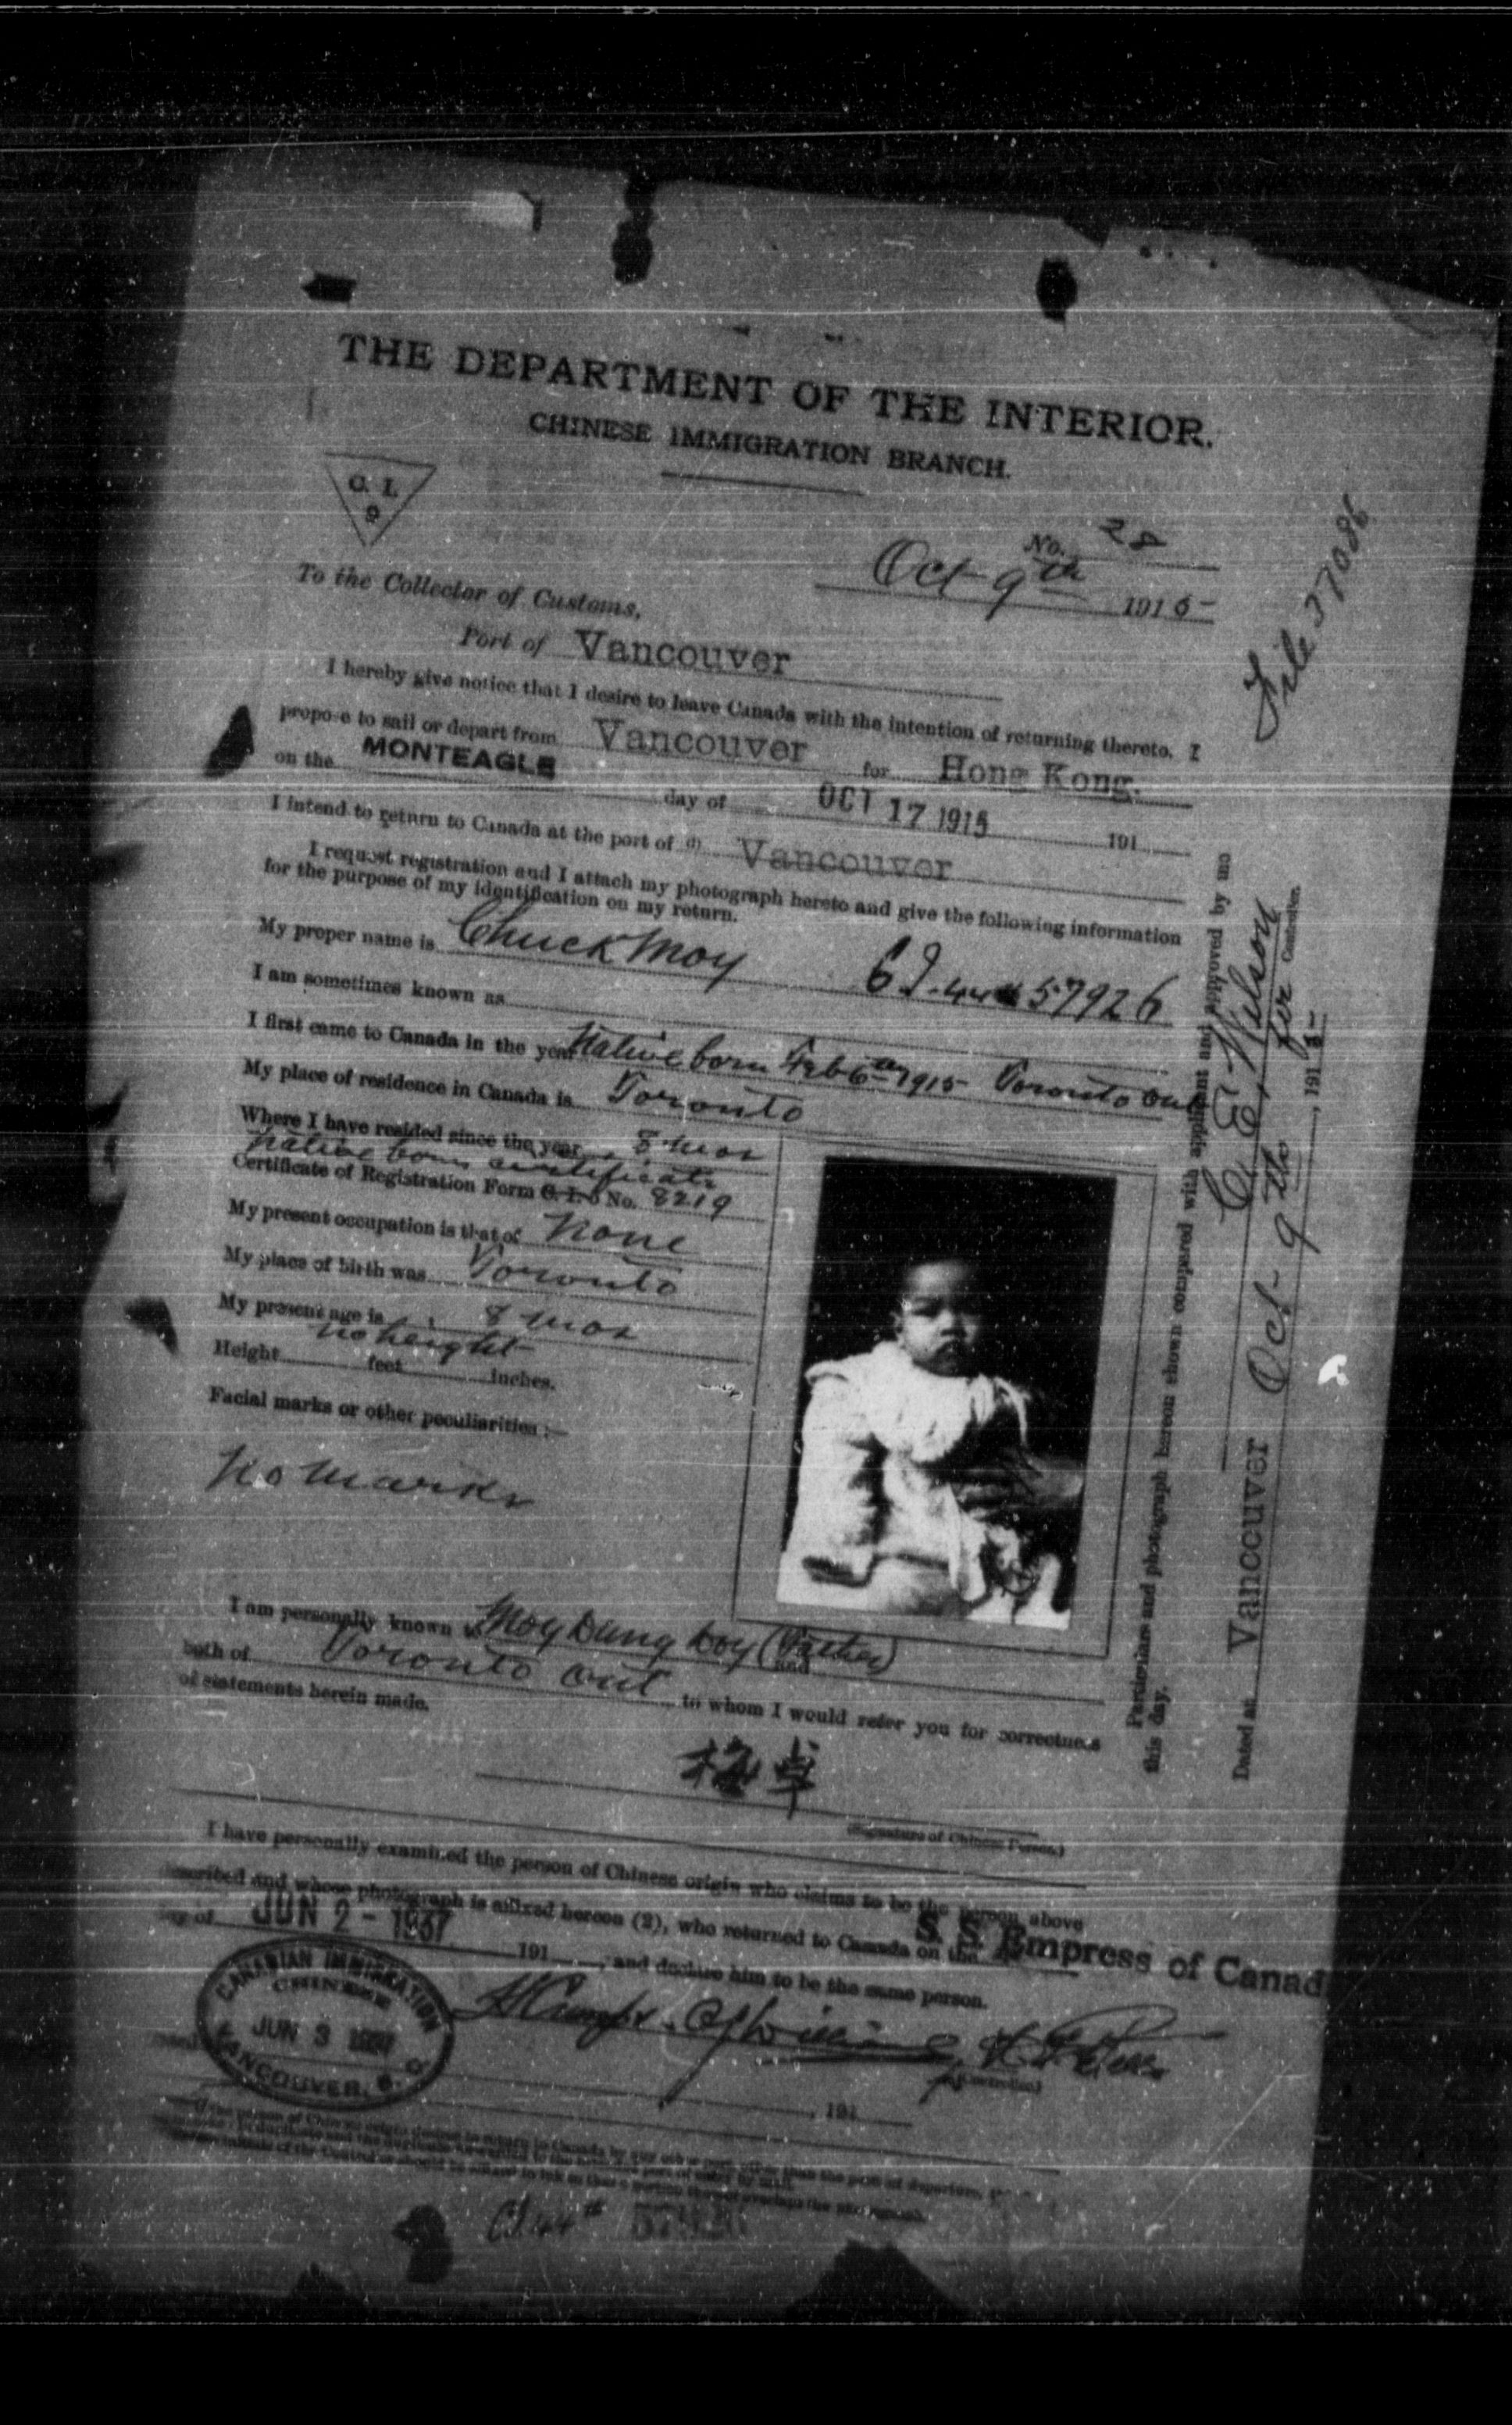 THE DEPARTMENT OF THE INTERIOR.
CHINESE IMMIGRATION BRANCH.
C. I.
9
No. 28
Oct 9th 1915
File 37086
To the Collector of Customs,
Port of Vancouver
I hereby give notice that I desire to leave Canada with the intention of returning thereto. I
propose to sail or depart from Vancouver for Hong Kong.
on the MONTEAGLE day of OCT 17 1915 191
I intend to return to Canada at the port of (1) Vancouver
I request registration and I attach my photograph hereto and give the following information
for the purpose of my identification on my return.
My proper name is Chuck Moy 57926
I am sometimes known as
I first came to Canada in the year Native born Feb 6th 1915 Toronto Ont
My place of residence in Canada is Toronto
Where I have resided since the year 8 mos
Native born certificate
Certificate of Registration Form C. I. 5 No. 8219
My present occupation is that of None
My place of birth was Toronto
My present age is 8 mos
no height
Height feet inches.
Facial marks or other peculiarities :—
No marks
I am personally known to Moy Dung Doy (Father) and
both of Toronto Ont to whom I would refer you for correctness
of statements herein made.
梅卓
(Signature of Chinese Person.)
I have personally examined the person of Chinese origin who claims to be the person above
described and whose photograph is affixed hereon (2), who returned to Canada on the S. S. Empress of Canad
day of JUN 2 - 1937 191 , and declare him to be the same person.
CANADIAN IMMIGRATION
CHINESE
JUN 3 1937
VANCOUVER, B. C.
(Controller)
191
CI 44 57926
Particulars and photograph hereon shown compared with applicant and approved by me
this day.
C E Wilson
for Controller.
Dated at Vancouver Oct 9th, 1915